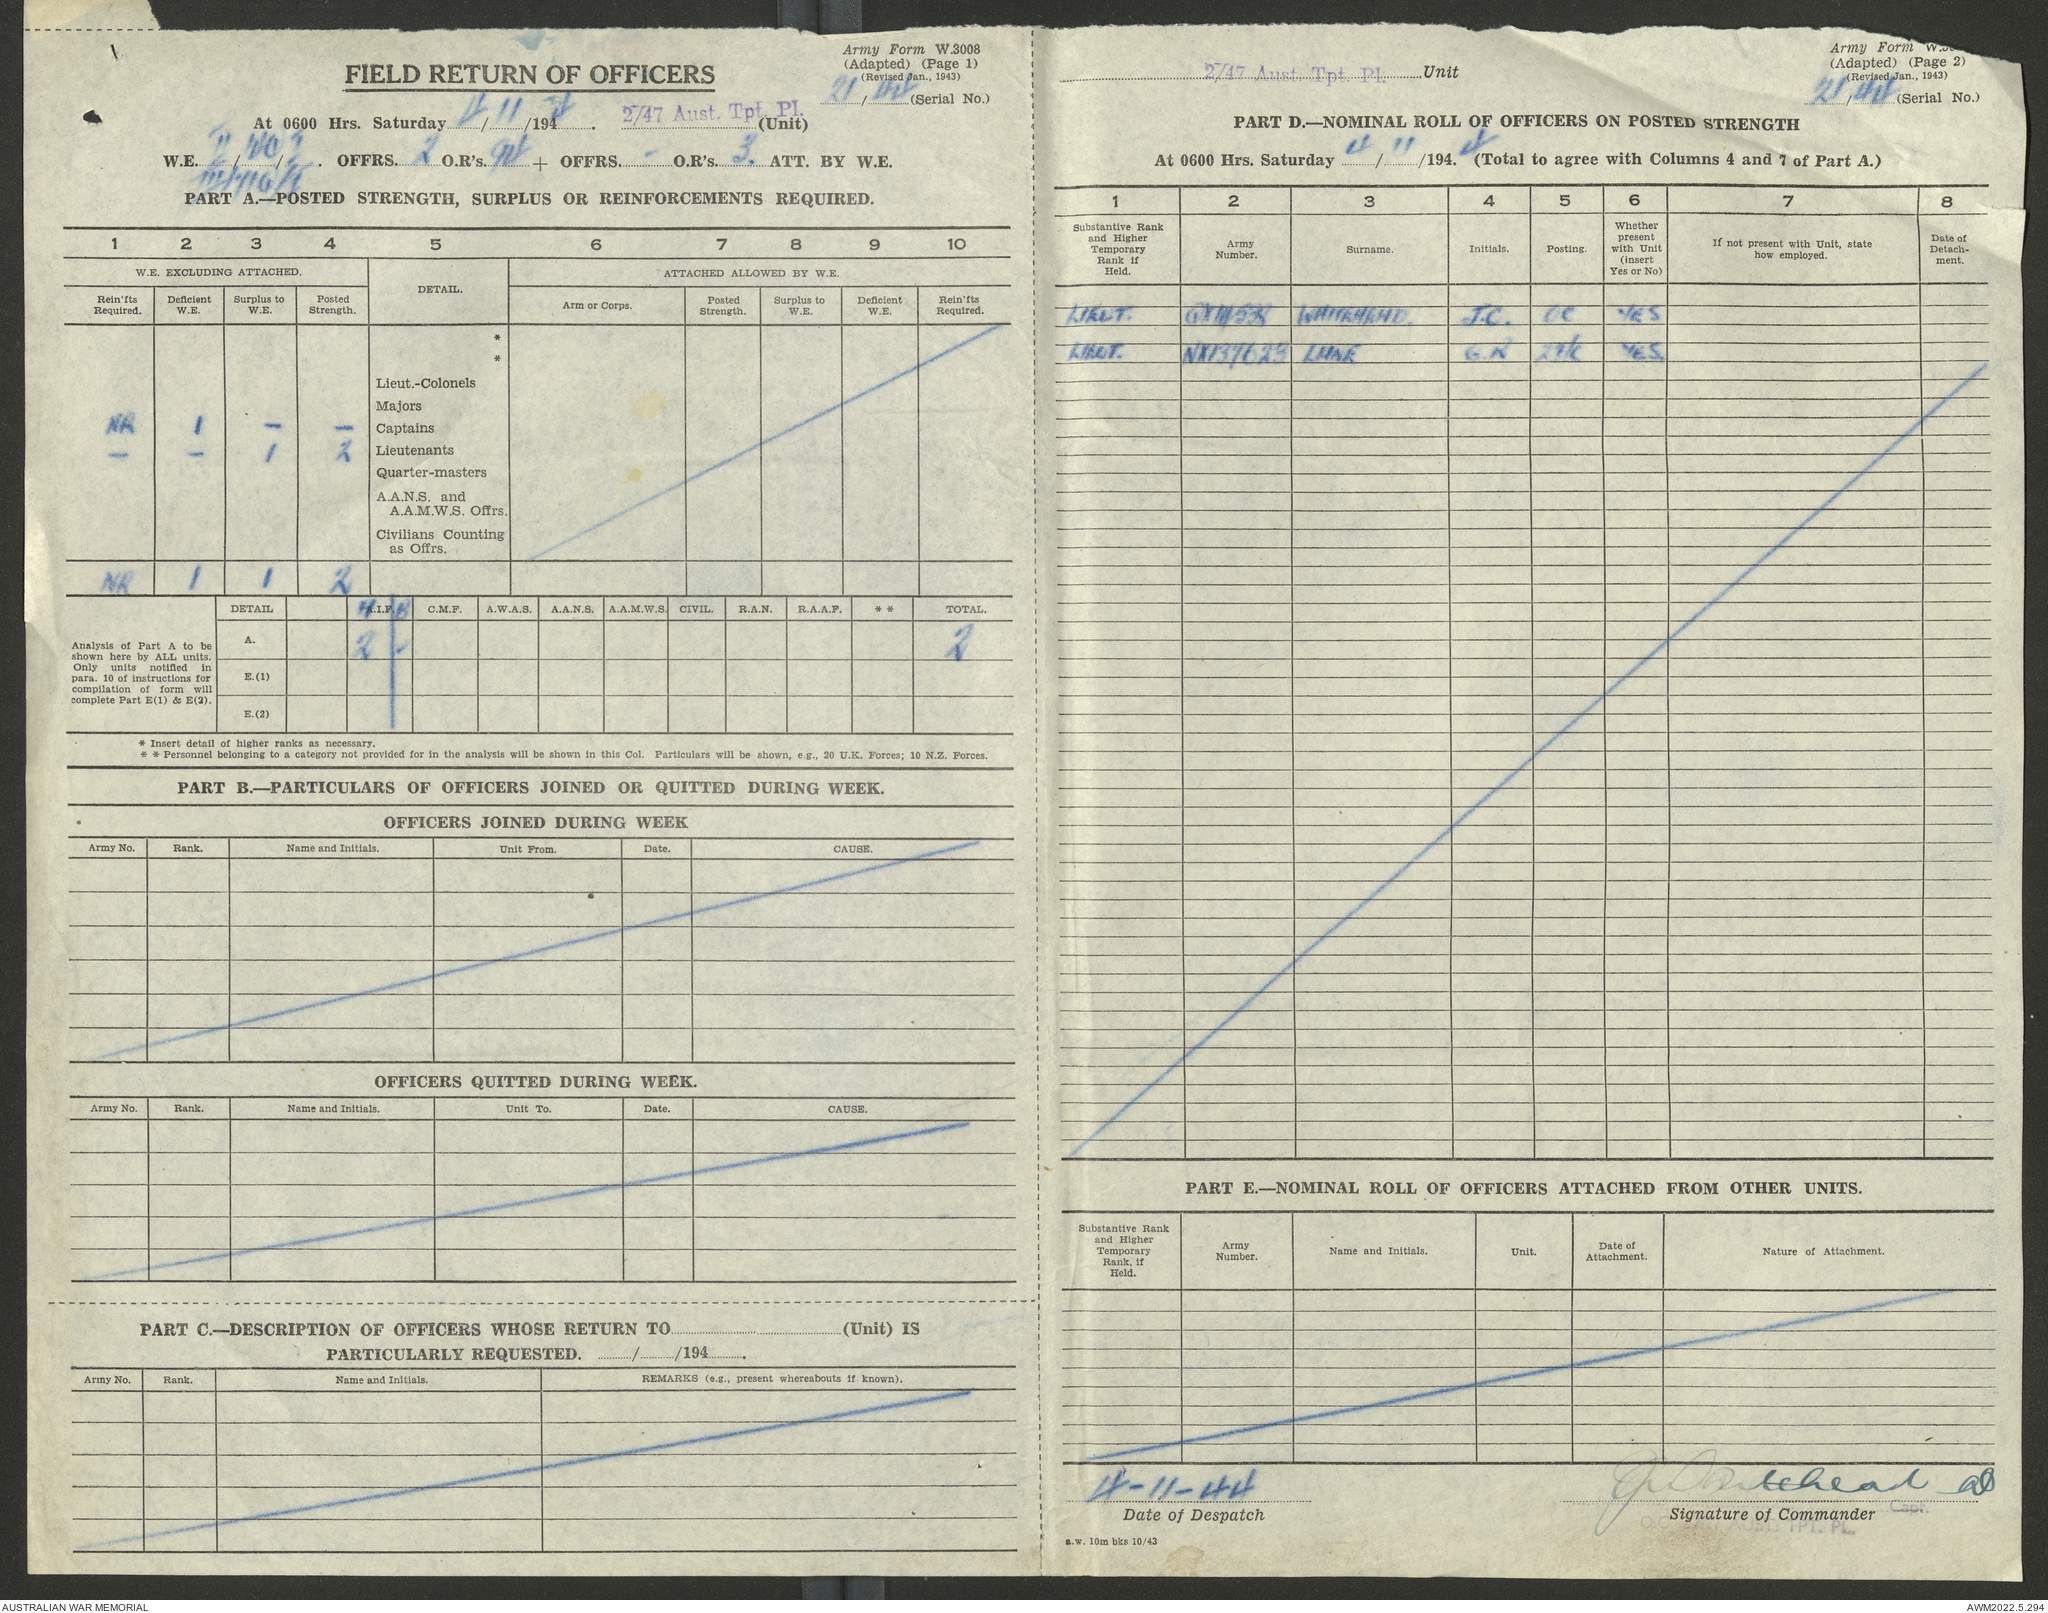 Army Form W.3008
(Adapted) (Page 1)
(Revised Jan., 1943)
21/44 (Serial No.)
FIELD RETURN OF OFFICERS
At 0600 Hrs. Saturday 4/11/1944. 2/47 Aust. Tpt. Pl. (Unit)
W.E. OFFRS. 2 O.R's. 94 + OFFRS. - O.R's. 3. ATT. BY W.E.
PART A.—POSTED STRENGTH, SURPLUS OR REINFORCEMENTS REQUIRED.
1 2 3 4 5 6 7 8 9 10
W.E. EXCLUDING ATTACHED. DETAIL. ATTACHED ALLOWED BY W.E.
Rein'fts Required. Deficient W.E. Surplus to W.E. Posted Strength. Arm or Corps. Posted Strength. Surplus to W.E. Deficient W.E. Rein'fts Required.
*
*
Lieut.-Colonels
Majors
NR 1 — — Captains
— — 1 2 Lieutenants
Quarter-masters
A.A.N.S. and
A.A.M.W.S. Offrs.
Civilians Counting
as Offrs.
NR 1 1 2
DETAIL A.I.F. C.M.F. A.W.A.S. A.A.N.S. A.A.M.W.S. CIVIL. R.A.N. R.A.A.F. * * TOTAL.
A. 2 - 2
E.(1)
E.(2)
Analysis of Part A to be
shown here by ALL units.
Only units notified in
para. 10 of instructions for
compilation of form will
complete Part E(1) & E(2).
* Insert detail of higher ranks as necessary.
* * Personnel belonging to a category not provided for in the analysis will be shown in this Col. Particulars will be shown, e.g., 20 U.K. Forces; 10 N.Z. Forces.
PART B.—PARTICULARS OF OFFICERS JOINED OR QUITTED DURING WEEK.
OFFICERS JOINED DURING WEEK
Army No. Rank. Name and Initials. Unit From. Date. CAUSE.
OFFICERS QUITTED DURING WEEK.
Army No. Rank. Name and Initials. Unit To. Date. CAUSE.
PART C.—DESCRIPTION OF OFFICERS WHOSE RETURN TO (Unit) IS
PARTICULARLY REQUESTED. / /194 .
Army No. Rank. Name and Initials. REMARKS (e.g., present whereabouts if known).
2/47 Aust. Tpt. Pl. Unit
Army Form
(Adapted) (Page 2)
(Revised Jan., 1943)
21/44 (Serial No.)
PART D.—NOMINAL ROLL OF OFFICERS ON POSTED STRENGTH
At 0600 Hrs. Saturday 4/11/194.4 (Total to agree with Columns 4 and 7 of Part A.)
1 2 3 4 5 6 7 8
Substantive Rank and Higher Temporary Rank if Held. Army Number. Surname. Initials. Posting. Whether present with Unit (insert Yes or No) If not present with Unit, state how employed. Date of Detachment.
LIEUT. WHITEHEAD. J.C. OC YES
LIEUT. NX137623 G.R YES.
PART E.—NOMINAL ROLL OF OFFICERS ATTACHED FROM OTHER UNITS.
Substantive Rank and Higher Temporary Rank, if Held. Army Number. Name and Initials. Unit. Date of Attachment. Nature of Attachment.
4-11-44 Whitehead
Date of Despatch Signature of Commander
Capt.
TPT. PL.
a.w. 10m bks 10/43
AUSTRALIAN WAR MEMORIAL AWM2022.5.294